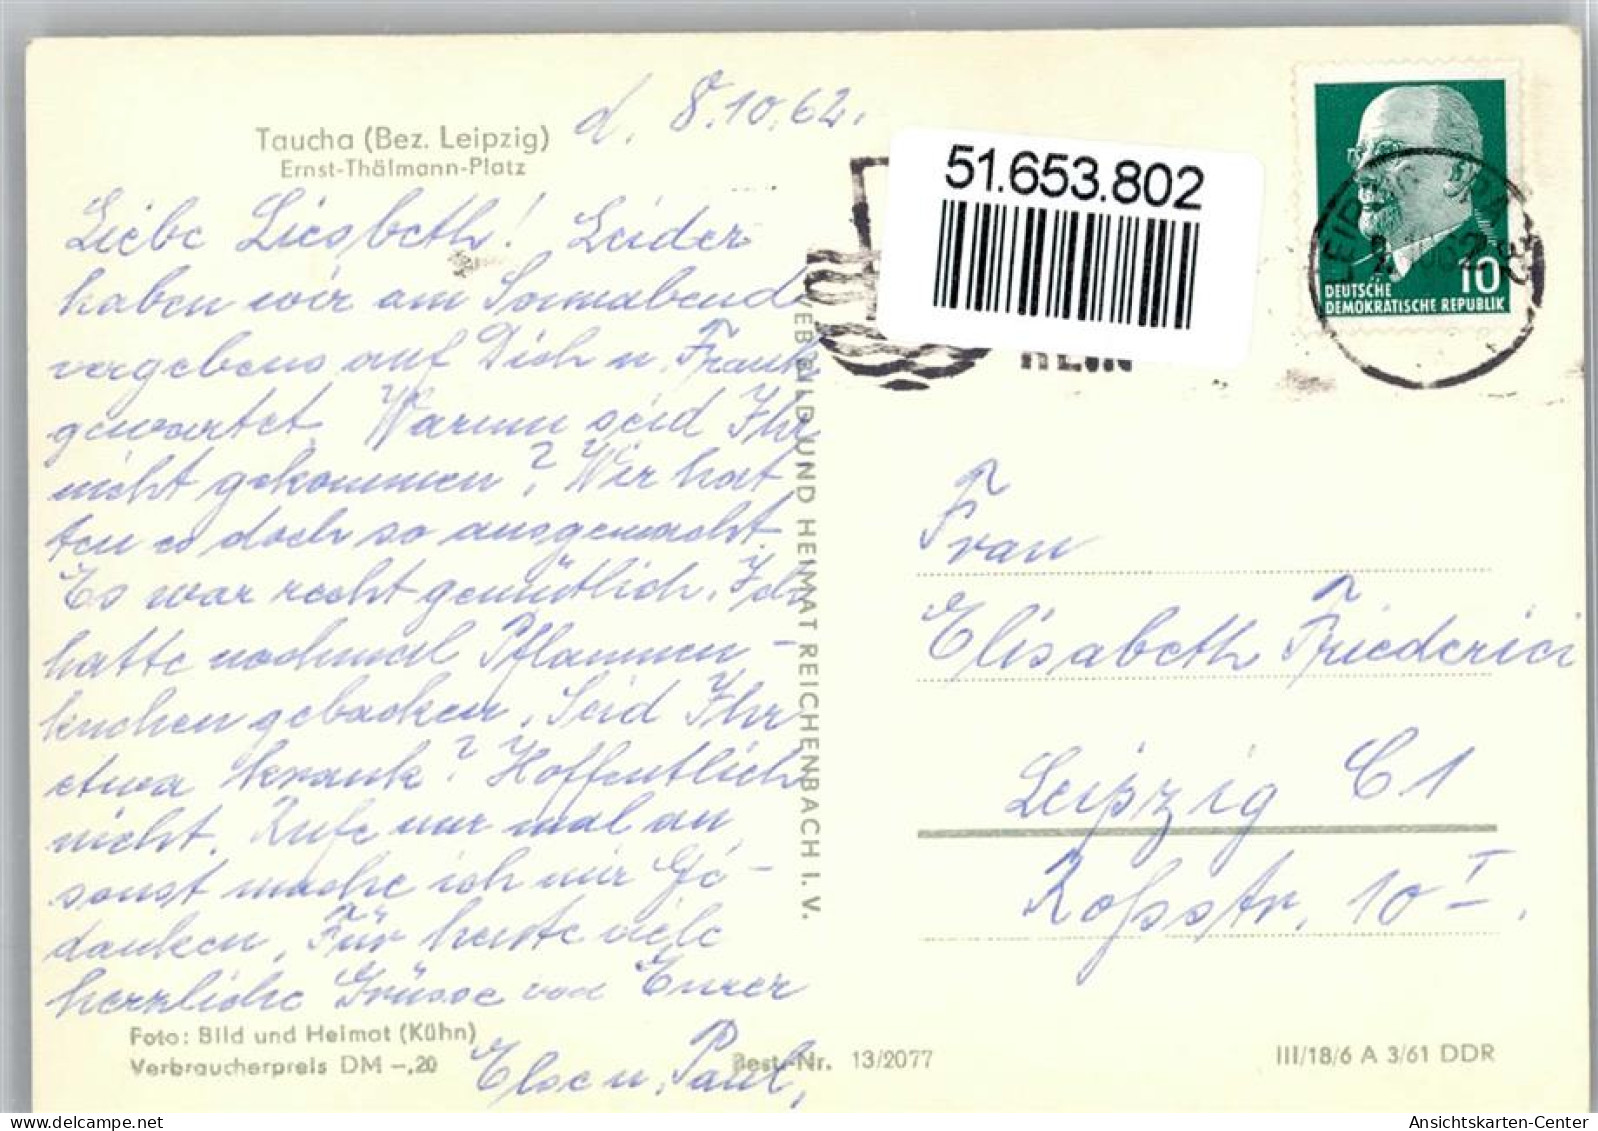 Taucha (Bez. Leipzig)
Ernst-Thälmann-Platz
d. 8.10.62.
Liebe Liesbeth! Leider
haben wir am Sonnabend
vergebens auf Dich u. Frank
gewartet. Warum seid Ihr
nicht gekommen? Wir hat
ten es doch so ausgemacht.
Es war recht gemütlich. Ich
hatte nochmal Pflaumen-
kuchen gebacken. Seid Ihr
etwa krank? Hoffentlich
nicht. Rufe nur mal an,
sonst mache ich mir Ge-
danken. Für heute viele
herzliche Grüsse von Eurer
Else u. Paul.
Foto: Bild und Heimat (Kühn)
Verbraucherpreis DM –,20
Best.-Nr. 13/2077
III/18/6 A 3/61 DDR
VEB BILD UND HEIMAT REICHENBACH I. V.
51.653.802
10
DEUTSCHE
DEMOKRATISCHE REPUBLIK
Frau
Elisabeth Friederici
Leipzig C1
Roßstr. 10 I.
Ansichtskarten-Center